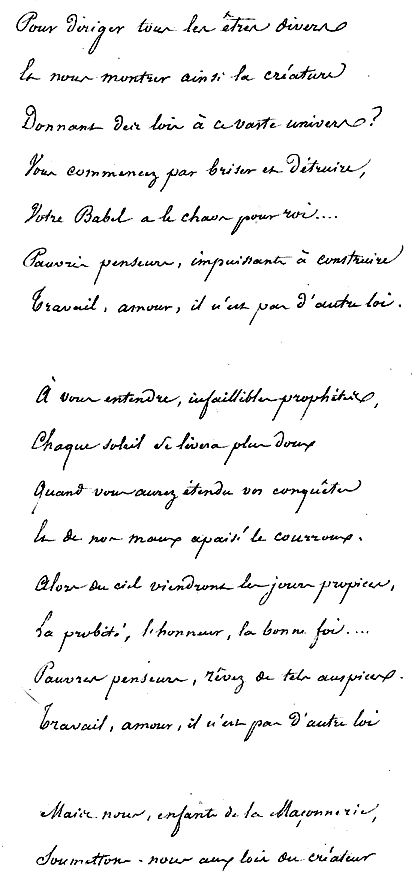 Pour diriger tous les êtres divers
Et nous montrer ainsi la créature
Donnant des lois à ce vaste univers?
Vous commencez par briser et détruire,
Votre Babel a le chaos pour roi....
Pauvres penseurs, impuissants à construire
Travail, amour, il n'est pas d'autre loi.
À vous entendre, infaillibles prophètes,
Chaque soleil se lèvera plus doux
Quand vous aurez étendu vos conquêtes
Et de nos maux apaisé le courroux.
Alors du ciel viendront les jours propices,
La probité, l'honneur, la bonne foi....
Pauvres penseurs, rêvez de tels auspices.
Travail, amour, il n'est pas d'autre loi
Mais nous, enfants de la Maçonnerie,
Soumettons-nous aux lois du créateur